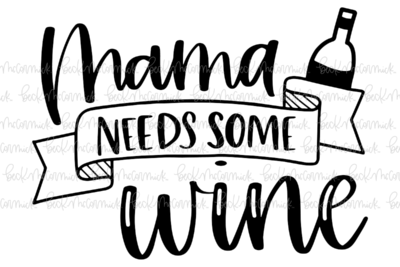 Mama
NEEDS SOME
wine